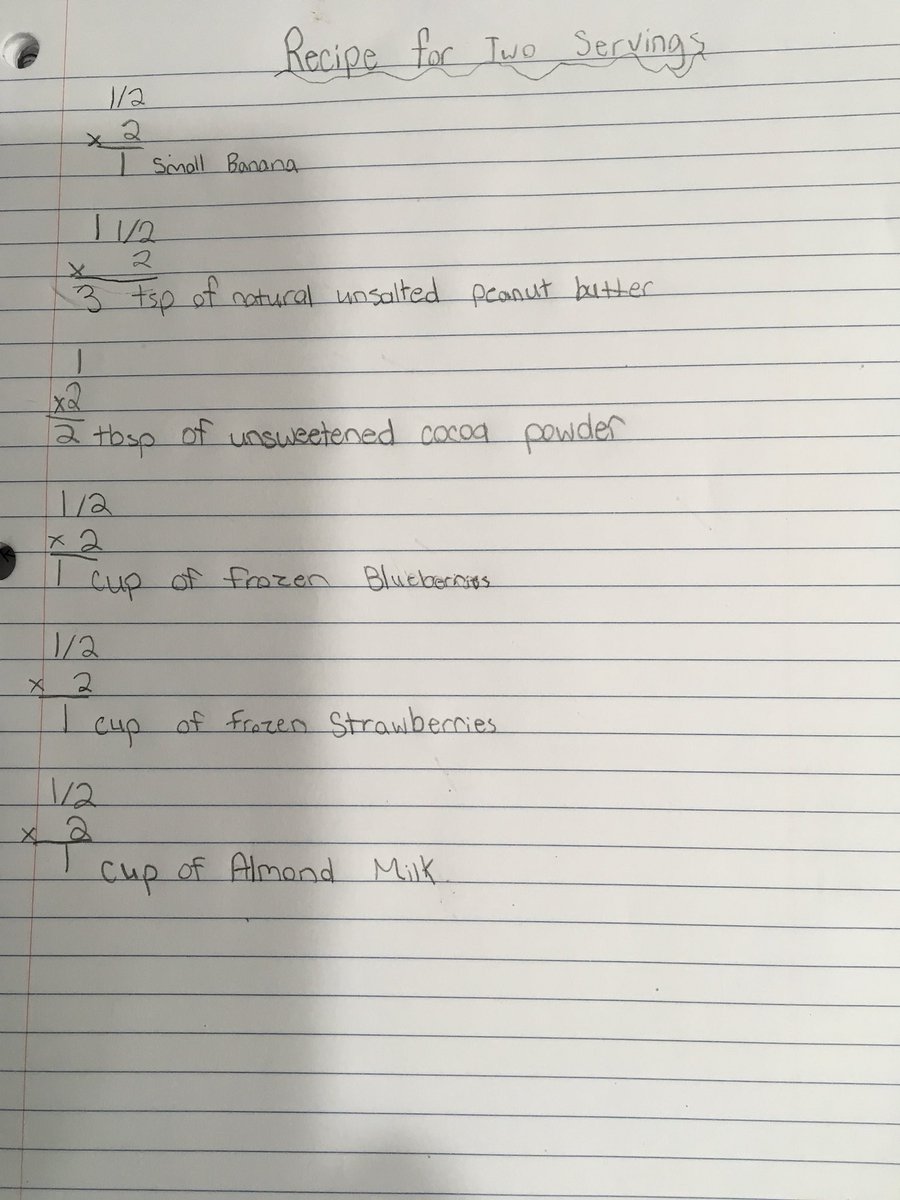 Recipe for Two Servings
1/2
x 2
1 Small Banana
1 1/2
x 2
3 tsp of natural unsalted peanut butter
1
x2
2 tbsp of unsweetened cocoa powder
1/2
x 2
1 cup of frozen Blueberries
1/2
x 2
1 cup of frozen Strawberries
1/2
x 2
1 cup of Almond Milk